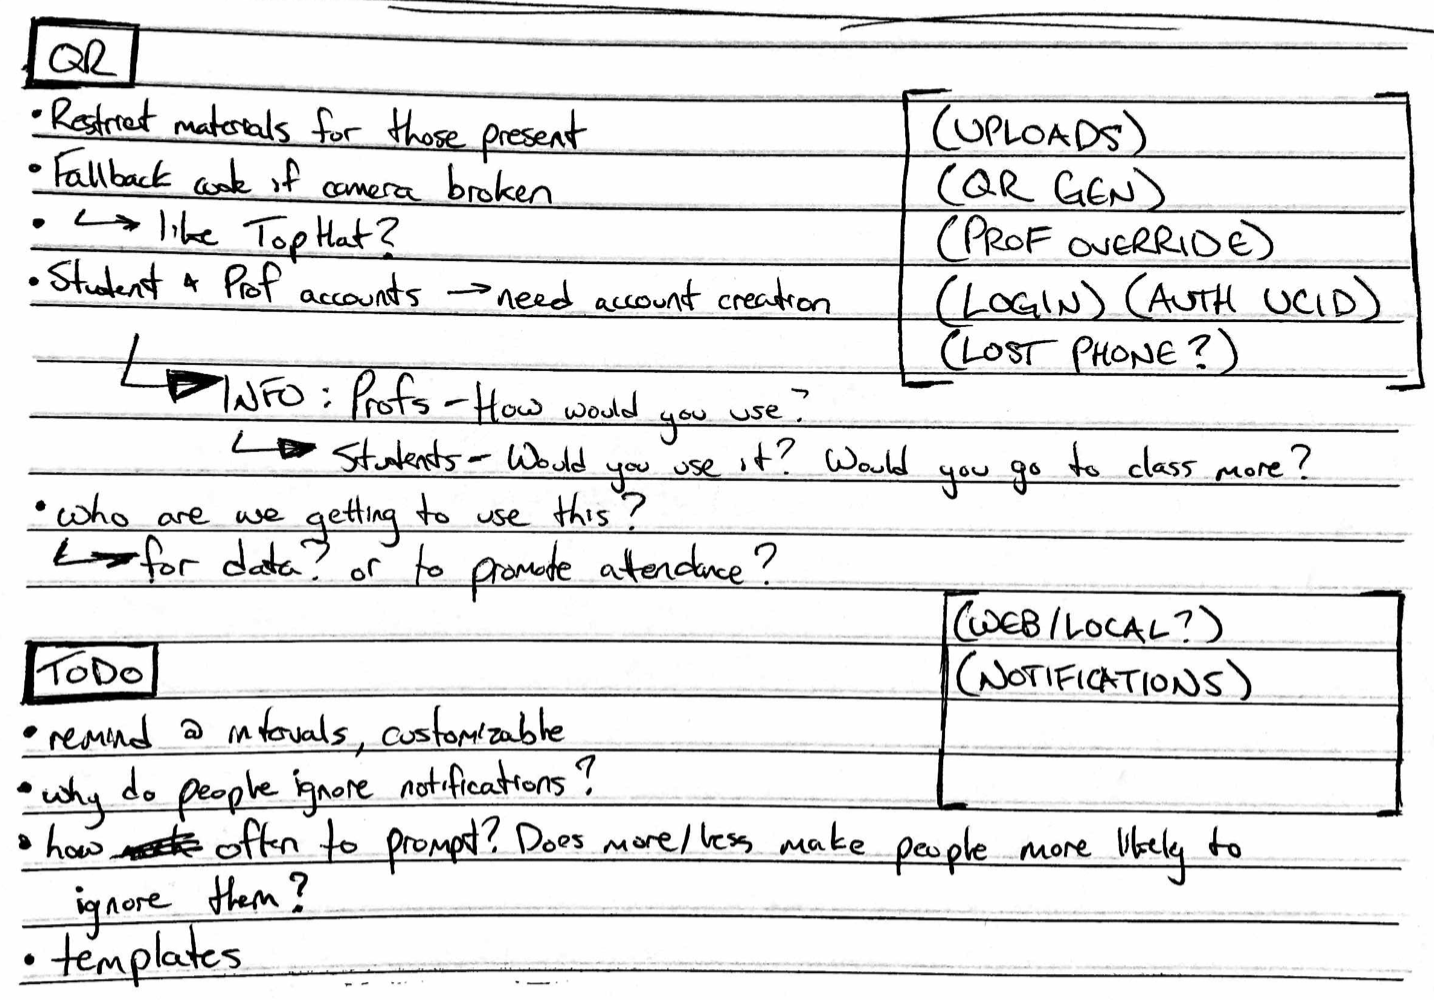 QR
• Restrict materials for those present
• Fallback code if camera broken
• ↳ like TopHat?
• Student & Prof accounts → need account creation
↳ INFO : Profs - How would you use?
↳ Students - Would you use it? Would you go to class more?
• who are we getting to use this?
↳ for data? or to promote attendance?
(UPLOADS)
(QR GEN)
(PROF OVERRIDE)
(LOGIN) (AUTH UCID)
(LOST PHONE?)
TODO
• remind @ intervals, customizable
• why do people ignore notifications?
• how often to prompt? Does more/less make people more likely to
ignore them?
• templates
(WEB/LOCAL?)
(NOTIFICATIONS)